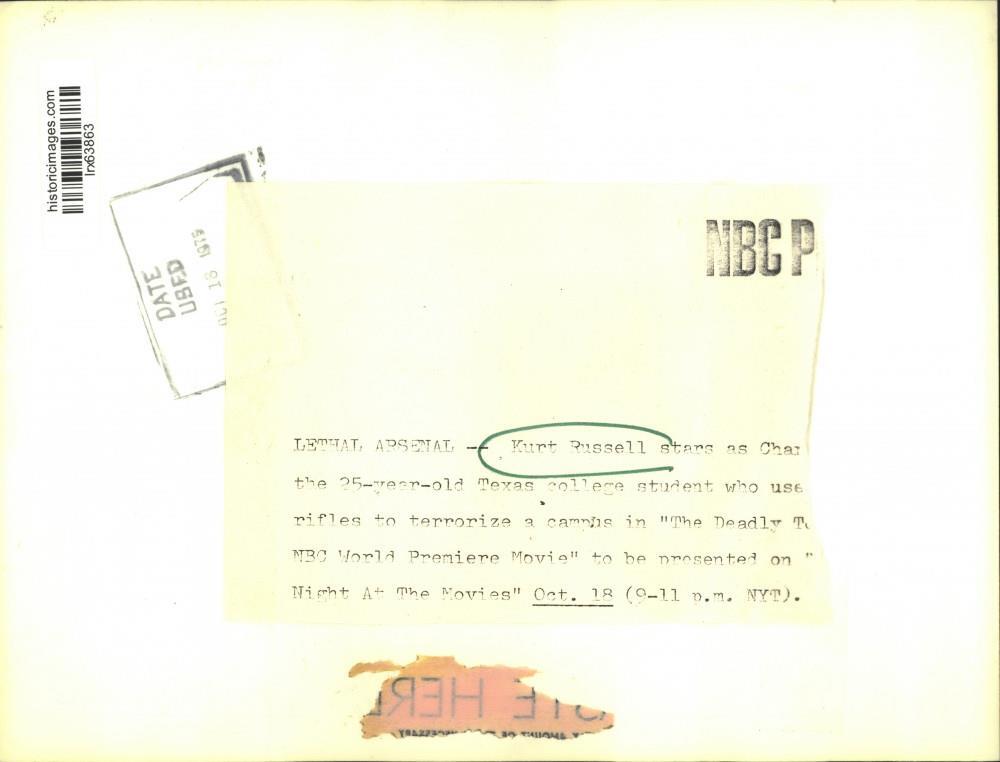 historicimages.com
lrx63863
DATE
USED
OCT 16 1975
NBC P
LETHAL ARSENAL -- Kurt Russell stars as Char
the 25-year-old Texas college student who use
rifles to terrorize a campus in "The Deadly To
NBC World Premiere Movie" to be presented on "
Night At The Movies" Oct. 18 (9-11 p.m. NYT).
STE HER
AMOUNT OF NECESSARY